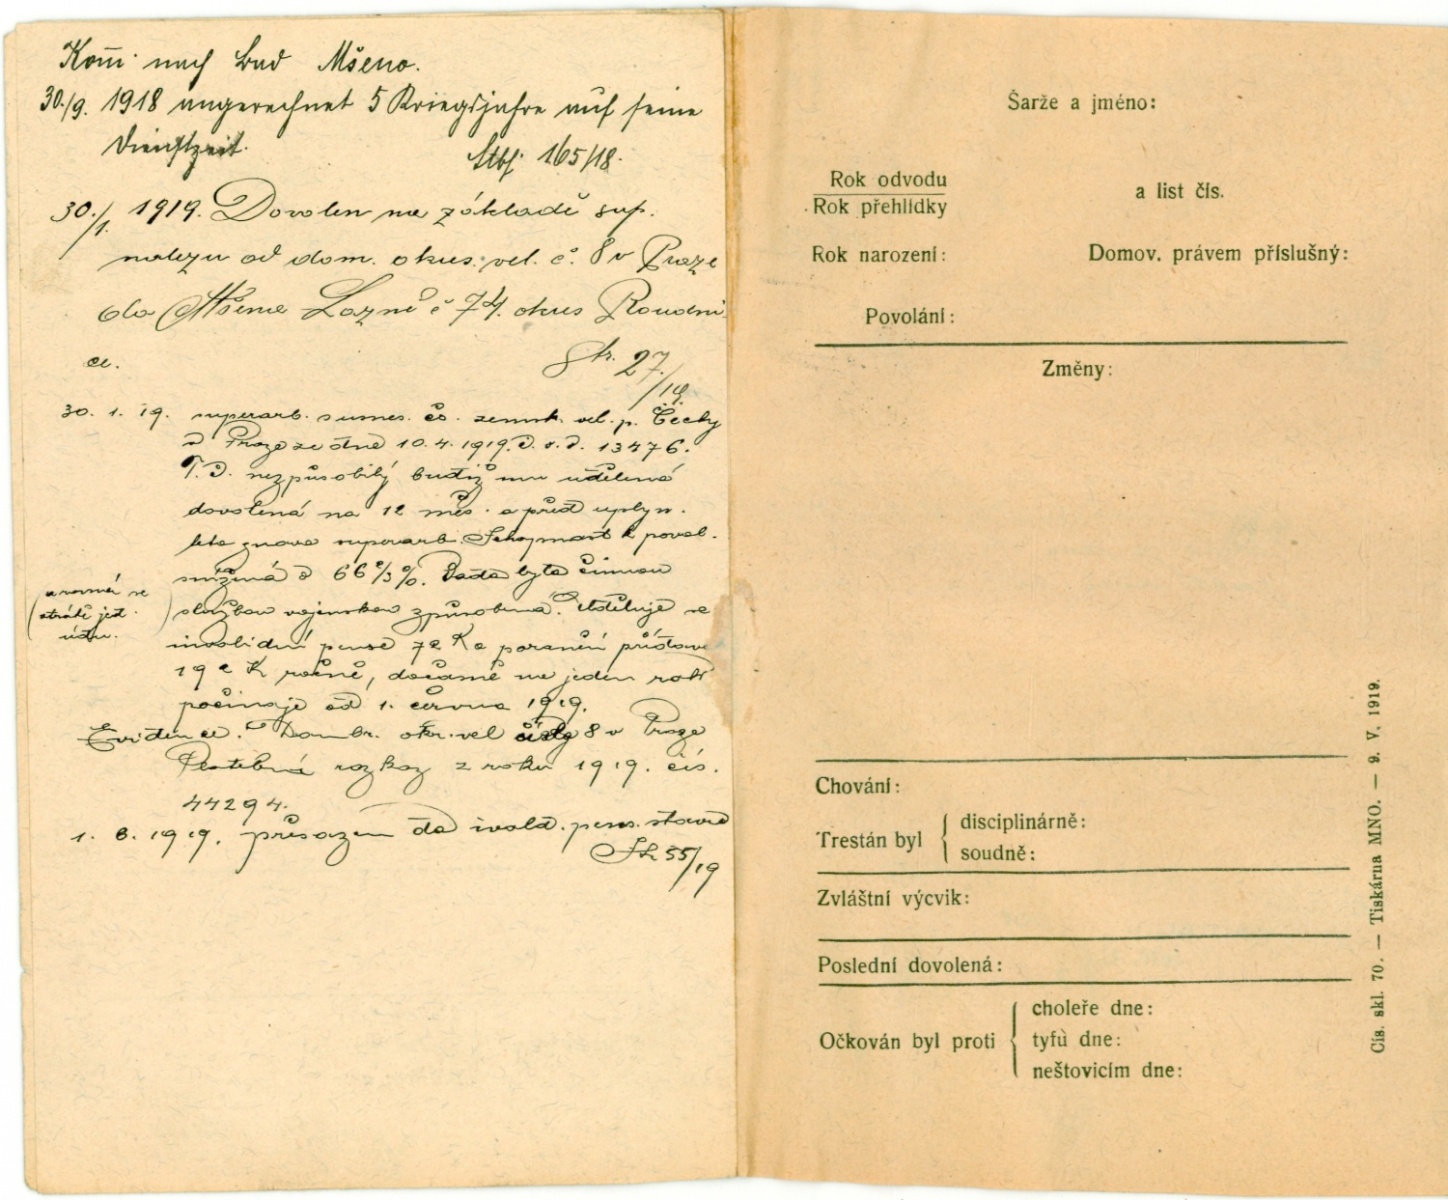 Kom̄. nach Bad Mšeno.
30./9. 1918 angerechnet 5 Kriegsjahre auf seine
Dienstzeit.
Stbf. 165/18.
30./1. 1919. Dovolen na základě sup.
nálezu od dom. okres. vel. č. 8 v Praze
do Mšena Lázně č 74. okres Roudni
ce.
27/19.
30. 1. 19. superarb. zemsk. vel. p. Čechy
v Praze ze dne 10. 4. 1919. 13476.
T. č. nezpůsobilý budiž mu udělena
dovolená na 12 měs. a před uplyn.
léta znova superarb. Schopnost k povol.
snížená o 66 2/3 %. Vada byla činnou
(a rovná se
ztrátě jed.
údu.)
službou vojenskou způsobena. Uděluje se
invalidní pense 72 K a poranění
192 K ročně, dočasně na jeden rok
počínaje od 1. června 1919.
Evidence. Dombr. okr. vel číslo 8 v Praze
rozkaz z roku 1919. čís.
44294.
1. 6. 1919. přesazen do invald. pens. stavu
55/19
Šarže a jméno:
Rok odvodu
Rok přehlídky
a list čís.
Rok narození:
Domov. právem příslušný:
Povolání:
Změny:
Chování:
Trestán byl
disciplinárně:
soudně:
Zvláštní výcvik:
Poslední dovolená:
Očkován byl proti
choleře dne:
tyfu dne:
neštovicím dne:
Čís. skl. 70. — Tiskárna MNO. — 9. V. 1919.